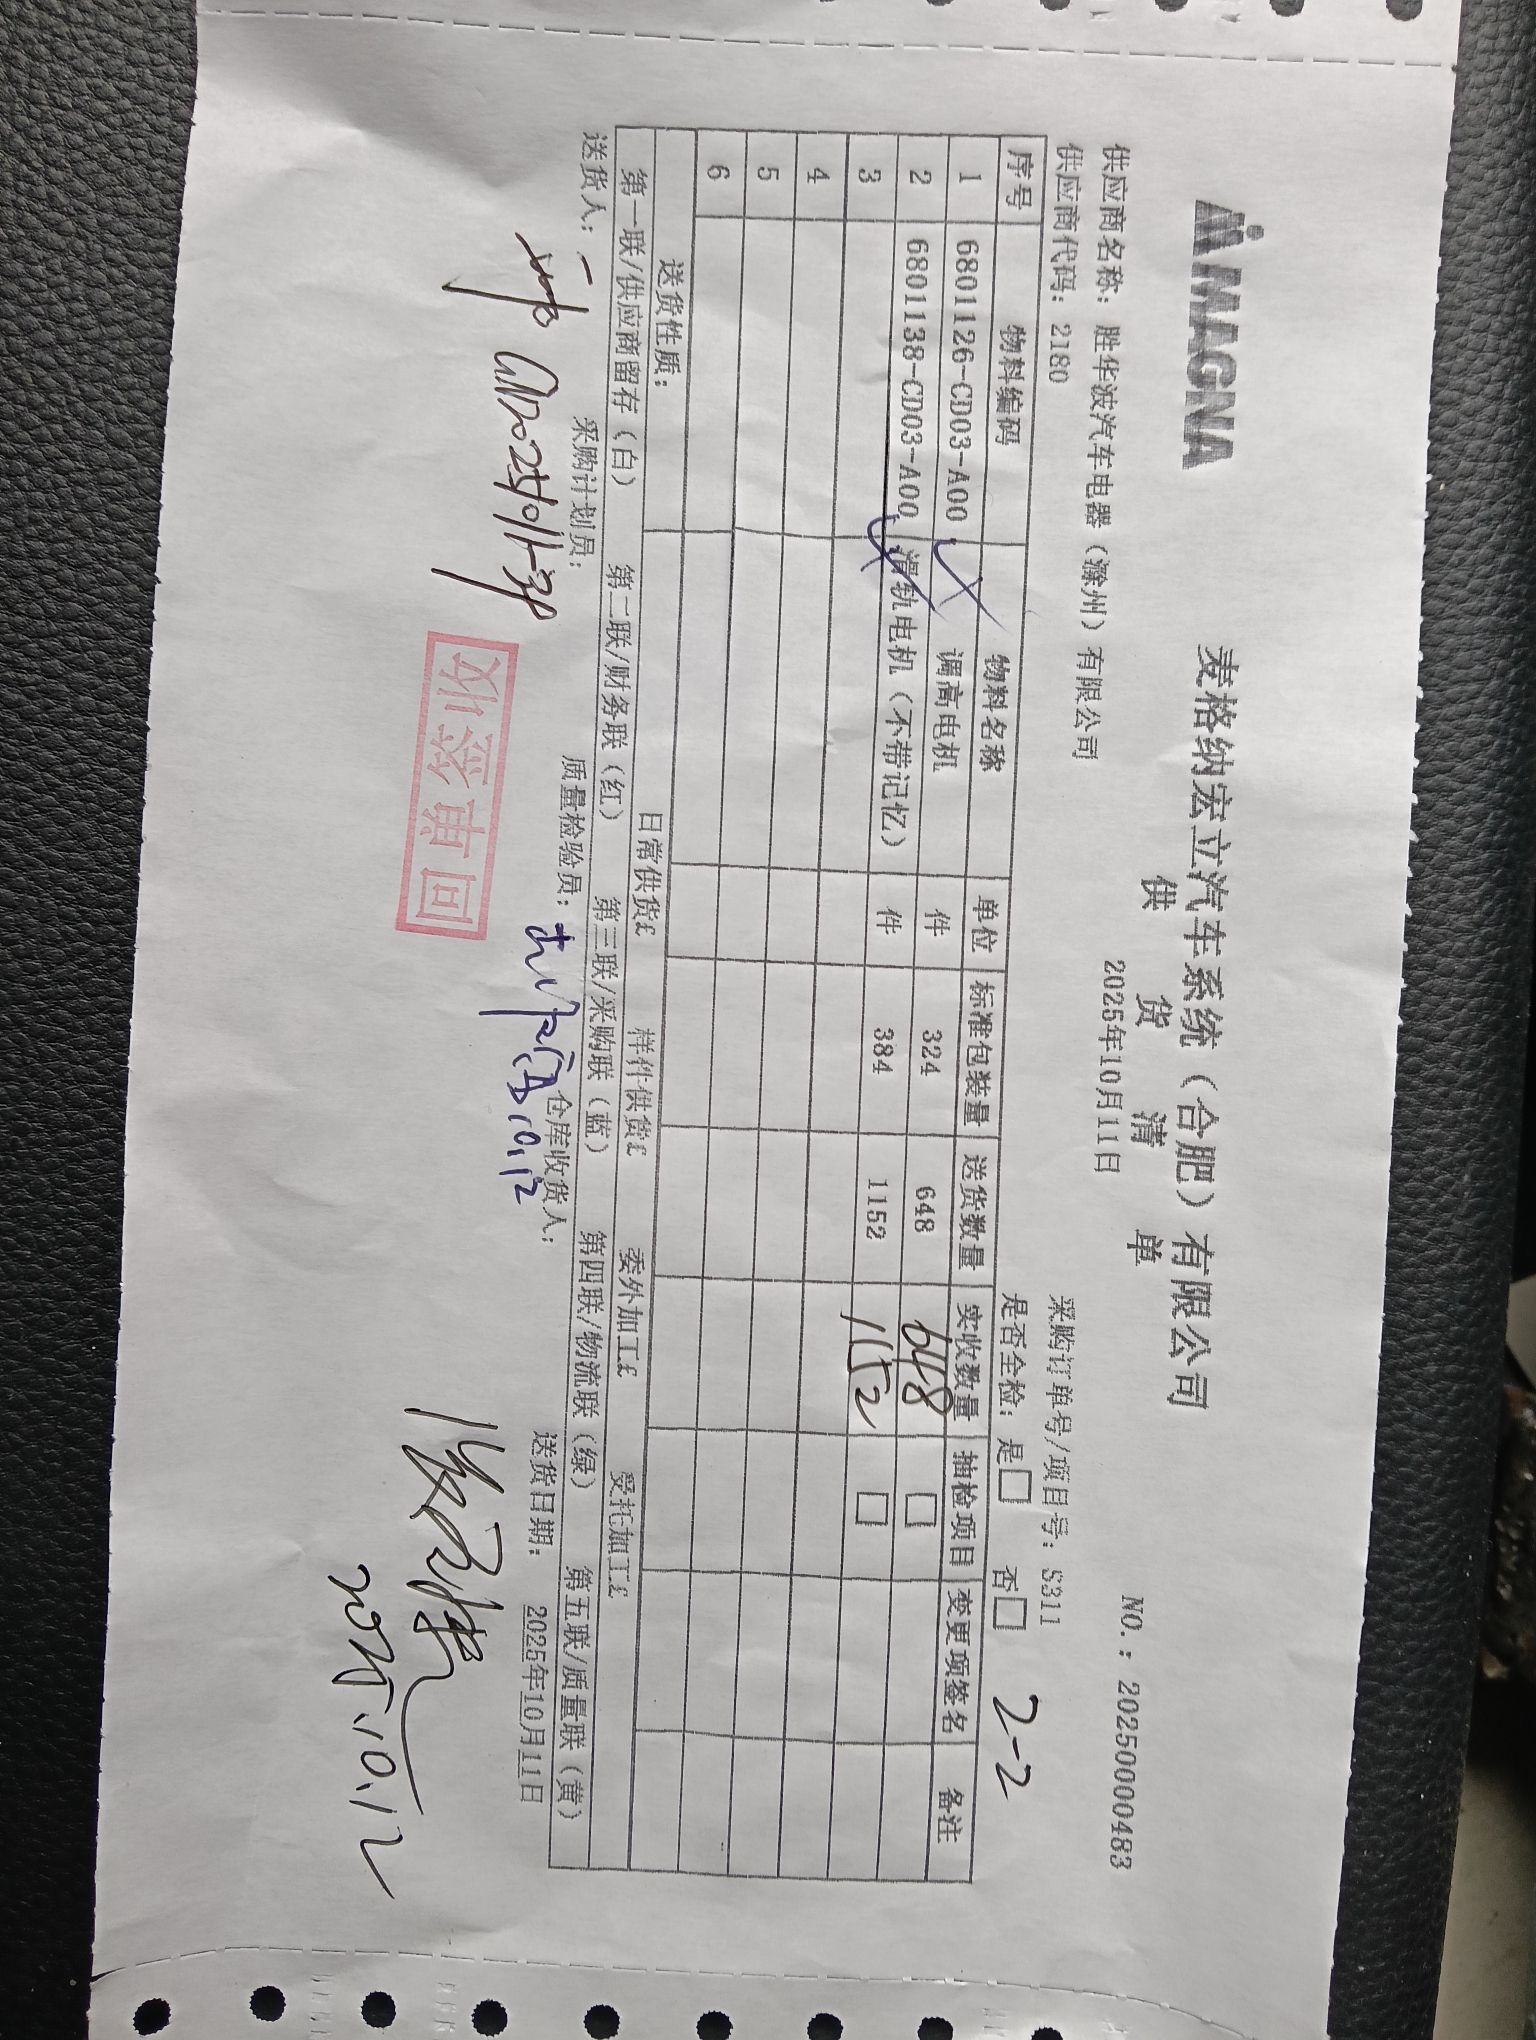 MAGNA
麦格纳宏立汽车系统（合肥）有限公司
供 货 清 单
NO.：20250000483
供应商名称：胜华波汽车电器（滁州）有限公司
2025年10月11日
采购订单号/项目号：S311
供应商代码：2180
是否全检：是□ 否□
2-2
序号 物料编码 物料名称 单位 标准包装量 送货数量 实收数量 抽检项目 变更项签名 备注
1 6801126-CD03-A00 调高电机 件 324 648 648 □
2 6801138-CD03-A00 滑轨电机（不带记忆） 件 384 1152 1152 □
3
4
5
6
送货性质： 日常供货£ 样件供货£ 委外加工£ 受托加工£
第一联/供应商留存（白） 第二联/财务联（红） 第三联/采购联（蓝） 第四联/物流联（绿） 第五联/质量联（黄）
送货人： 采购计划员： 质量检验员： 仓库收货人： 送货日期：2025年10月11日
10.12
回单签收
2025.10.12